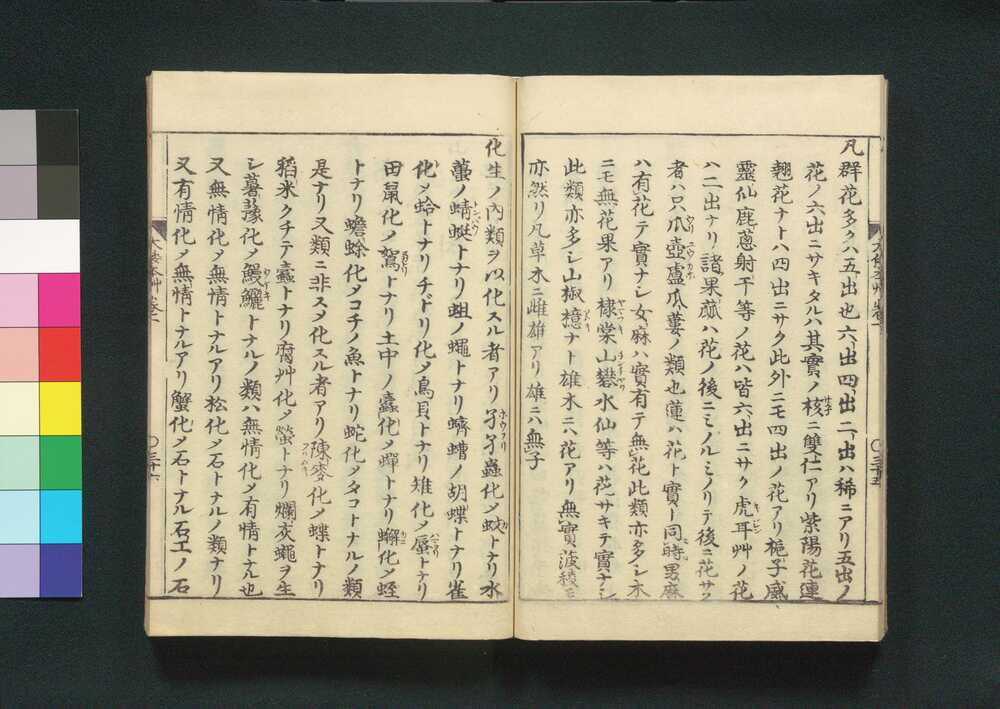 凡群花多クハ五出也六出四出二出ハ稀ニアリ五出ノ
花ノ六出ニサキタルハ其實ノ核ニ雙仁アリ紫陽花連
翹花ナトハ四出ニサク此外ニモ四出ノ花アリ梔子威
靈仙鹿蔥射干等ノ花ハ皆六出ニサク虎耳艸ノ花
ハ二出ナリ諸果蓏ハ花ノ後ニミノルミノリテ後ニ花サク
者ハ只瓜壺盧瓜蔞ノ類也蓮ハ花ト實ト同時男麻
ハ有花テ實ナシ女麻ハ實有テ無花此類亦多シ木
ニモ無花果アリ棣棠山礬水仙等ハ花サキテ實ナシ
此類亦多シ山椒檍ナト雄木ニハ花アリ無實菠薐モ
亦然リ凡草木ニ雌雄アリ雄ニハ無子
化生ノ內類ヲ以化スル者アリ孑孑蟲化メ蚊トナリ水
蠆ノ蜻蜓トナリ蛆ノ蠅トナリ蠐螬ノ胡蝶トナリ雀
化メ蛤トナリチドリ化メ鳥貝トナリ雉化メ蜃トナリ
田鼠化メ鴽トナリ土中ノ蠹化メ蟬トナリ化メ蛭
トナリ蟾蜍化メコチノ魚トナリ蛇化メタコトナルノ類
是ナリ又類ニ非スメ化スル者アリ陳麥化メ蝶トナリ
稻米クチテ蠹トナリ腐艸化メ螢トナリ爛灰蠅ヲ生
シ薯蕷化メ鰻鱺トナルノ類ハ無情化メ有情トナル也
又無情化メ無情トナルアリ松化メ石トナルノ類ナリ
又有情化メ無情トナルアリ蟹化メ石トナル石工ノ石
大倭本艸卷一
〇三十六
〇三十五